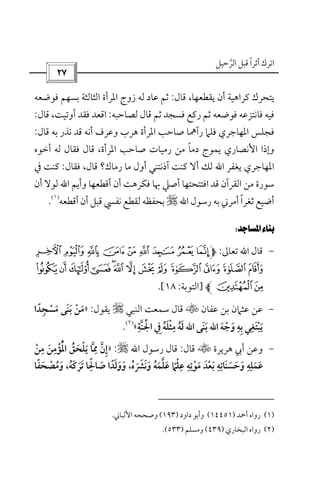 اترك أثراً قبل الرَّحيل
٢٧
يتحرك كراهية أن يقطعها، قال: ثم عاد له زوج المرأة الثالثة بسهم فوضعه
فيه فانتزعه فوضعه ثم ركع فسجد ثم قال لصاحبه: اقعد فقد أوتيت، قال:
فجلس المهاجري فلما رآهما صاحب المرأة هرب وعرف أنه قد نذر به قال:
وإذا الأنصاري يموج دماً من رميات صاحب المرأة، قال فقال له أخوه
المهاجري يغفر الله لك ألا كنت آذنتني أول ما رماك؟ قال، فقال: كنت في
سورة من القرآن قد افتتحتها أصلي بها فكرهت أن أقطعها وأيم الله لولا أن
أضيع ثغراً أمرني به رسول الله ﷺ بحفظه لقطع نفسي قبل أن أقطعه(١).
بناء المساجد:
- قال الله تعالى: ﴿إِنَّمَا يَعْمُرُ مَسَٰجِدَ ٱللَّهِ مَنْ ءَامَنَ بِٱللَّهِ وَٱلْيَوْمِ ٱلْءَاخِرِ
وَأَقَامَ ٱلصَّلَوٰةَ وَءَاتَى ٱلزَّكَوٰةَ وَلَمْ يَخْشَ إِلَّا ٱللَّهَ فَعَسَىٰٓ أُو۟لَٰٓئِكَ أَن يَكُونُوا۟
مِنَ ٱلْمُهْتَدِينَ﴾ [التوبة: ١٨].
- عن عثمان بن عفان ﷺ قال سمعت النبي ﷺ يقول: «مَنْ بَنَى مَسْجِدًا
يَبْتَغِي بِهِ وَجْهَ الله بَنَى الله لَهُ مِثْلَهُ فِي الجَنَّةِ»(٢).
- وعن أبي هريرة ﷺ قال: قال رسول الله ﷺ: «إِنَّ مِمَّا يَلْحَقُ الْمُؤْمِنَ مِنْ
عَمَلِهِ وَحَسَنَاتِهِ بَعْدَ مَوْتِهِ عِلْمًا عَلَّمَهُ وَنَشَرَهُ، وَوَلَدًا صَالِحًا تَرَكَهُ، وَمُصْحَفًا
(١) رواه أحمد (١٤٤٥١) وأبو داود (١٩٣) وصححه الألباني.
(٢) رواه البخاري (٤٣٩) ومسلم (٥٣٣).